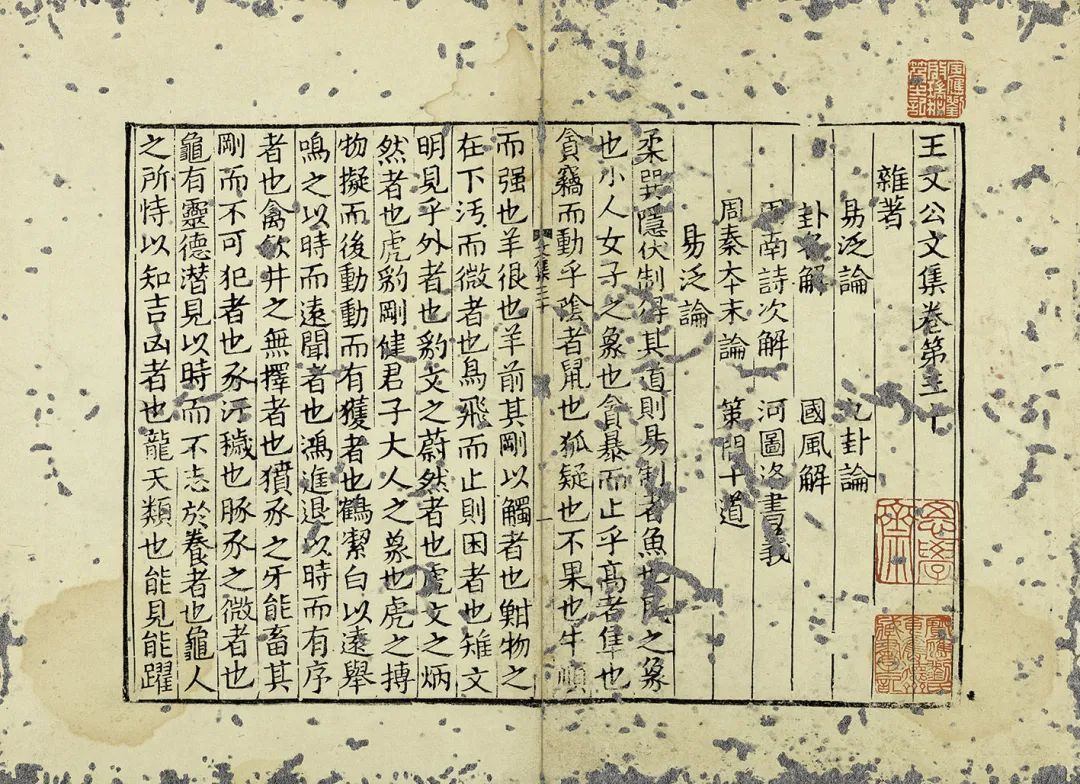 王文公文集卷第三十
雜著
易泛論 九卦論
卦名解 國風解
周南詩次解 河圖洛書義
周秦本末論 策問十道
易泛論
柔巽隱伏制得其道則易制者魚也民之象
也小人女子之象也貪暴而止乎高者隼也
貪竊而動乎陰者鼠也狐疑也不果也牛順
文集三十
一
而强也羊很也羊前其剛以觸者也鮒物之
在下汚而微者也鳥飛而止則困者也雉文
明見乎外者也豹文之蔚然者也虎文之炳
然者也虎豹剛健君子大人之象也虎之搏
物擬而後動動而有獲者也鶴潔白以遠舉
鳴之以時而遠聞者也鴻進退以時而有序
者也禽飲井之無擇者也豶豕之牙能畜其
剛而不可犯者也豕汙穢也豚豕之微者也
龜有靈德潛見以時而不志於養者也龜人
之所恃以知吉凶者也龍天類也能見能躍